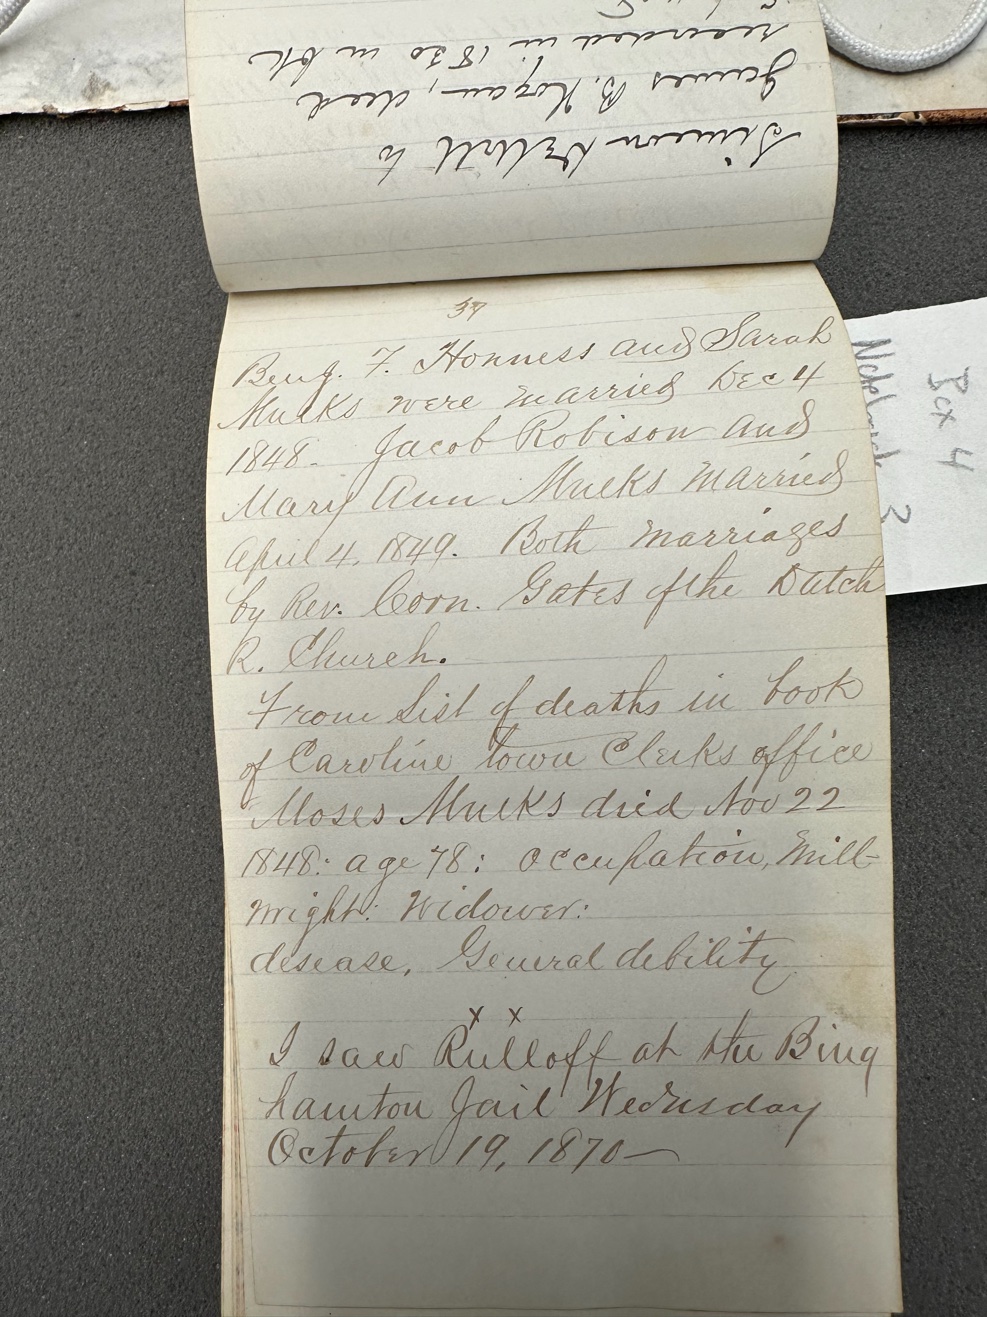 Simeon DeWitt to
James B. Hogan, deed
recorded in 1820 in bk
37
Benj. F. Honness and Sarah
Mulks were married Dec 4
1848. Jacob Robison and
Mary Ann Mulks married
April 4, 1849. Both marriages
by Rev. Corn. Gates of the Dutch
R. Church.
From list of deaths in book
of Caroline town Clerks office
Moses Mulks died Nov 22
1848: age 78: occupation, Mill-
wright: Widower:
desease, General debility
x x
I saw Rulloff at the Bing
hamton Jail Wednesday
October 19, 1870—
Box 4
Notebook 3